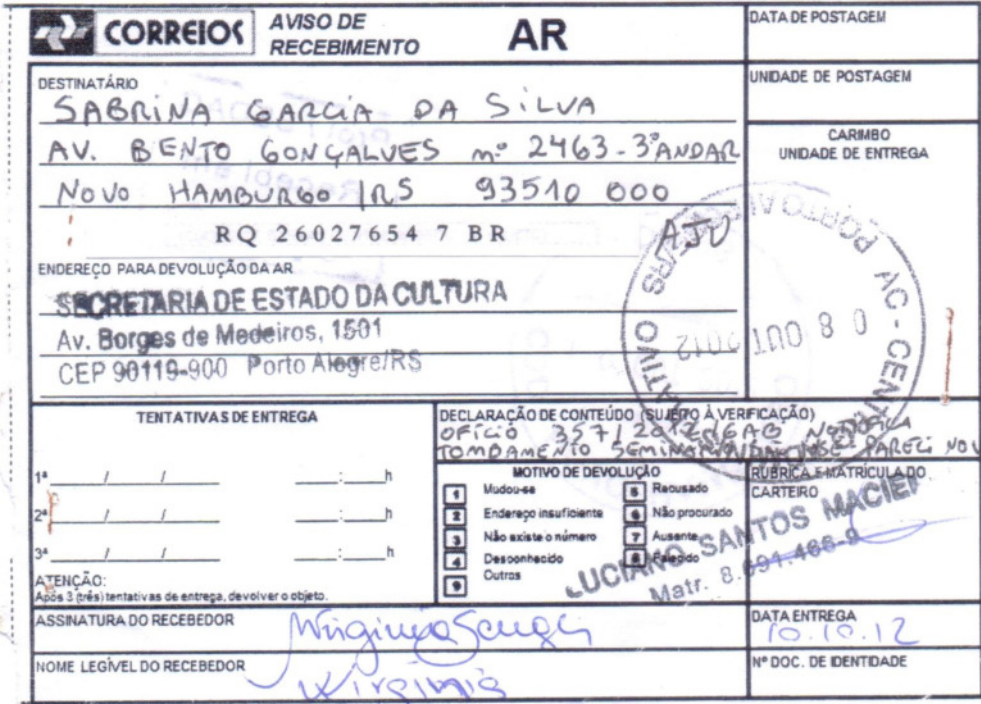 CORREIOS
AVISO DE RECEBIMENTO
AR
DATA DE POSTAGEM
UNIDADE DE POSTAGEM
DESTINATÁRIO
SABRINA GARCIA DA SILVA
AV. BENTO GONÇALVES nº 2463-3ºANDAR
NOVO HAMBURGO/RS 93510 000
RQ 26027654 7 BR
CARIMBO
UNIDADE DE ENTREGA
AC - CENTRO ADMINISTRATIVO
PORTO ALEGRE/RS
08 OUT 2012
ENDEREÇO PARA DEVOLUÇÃO DA AR
SECRETARIA DE ESTADO DA CULTURA
Av. Borges de Medeiros, 1501
CEP 90119-900 Porto Alegre/RS
TENTATIVAS DE ENTREGA
1ª ____/____/____ ____:____h
2ª ____/____/____ ____:____h
3ª ____/____/____ ____:____h
ATENÇÃO:
Após 3 (três) tentativas de entrega, devolver o objeto.
DECLARAÇÃO DE CONTEÚDO (SUJEITO À VERIFICAÇÃO)
OFÍCIO 357/2012/GAB NOTIFICA
TOMBAMENTO PARECI NOVO
MOTIVO DE DEVOLUÇÃO
1 Mudou-se
2 Endereço insuficiente
3 Não existe o número
4 Desconhecido
9 Outros
5 Recusado
6 Não procurado
7 Ausente
8 Falecido
RUBRICA E MATRÍCULA DO CARTEIRO
LUCIANO SANTOS MACIEL
Matr. 8.691.466-9
ASSINATURA DO RECEBEDOR
DATA ENTREGA
10.10.12
NOME LEGÍVEL DO RECEBEDOR
Virginia
Nº DOC. DE IDENTIDADE